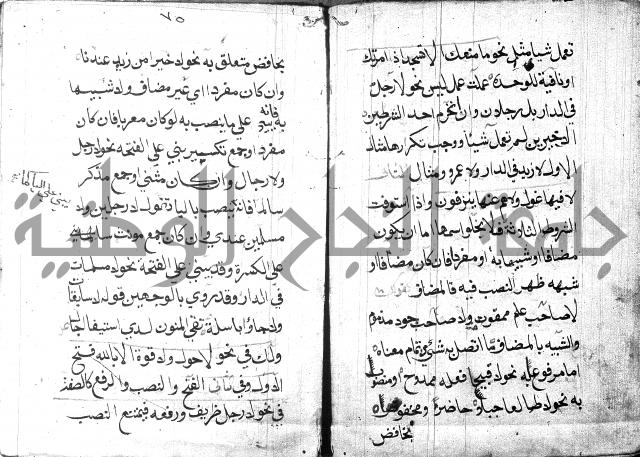 تعمل شيا مثل نحو ما منعك الا تسجد اذ امرتك
او نافية للوحدة عملت عمل ليس نحو لا رجل
في الدار بل رجلان وان انخرم احد الشرطين
الاخيرين لم تعمل شيئا ووجب تكرارها مثال
الاول لا زيد في الدار ولا عمرو ومثال الثاني
لا فيها غول ولا هم عنها ينزفون واذا استوفت
الشروط فلا يخلو اسمها اما ان يكون
مضافا او شبيها به او مفردا فان كان مضافا او
شبهه ظهر النصب فيه فالمضاف نحو
لا صاحب علم ممقوت ولا صاحب جود مذموم
والشبيه بالمضاف ما اتصل به شئ من تمام معناه
اما مرفوع به نحو لا قبيحا فعله ممدوح او منصوب
به نحو لا طالعا جبلا حاضر او مخفوض
بخافض
٧٥
بخافض متعلق به نحو لا خيرا من زيد عندنا
وان كان مفردا اي غير مضاف ولا شبيها
به فانه يبنى على ما ينصب به لو كان معربا فان كان
مفردا او جمع تكسير بني على الفتح نحو لا رجل
ولا رجال وان كان مثنى او جمع مذكر
سالما فانه ينصب باليا تقول لا رجلين ولا
مسلمين عندي وان كان جمع مونث سالما يبنى
على الكسرة وقد يبنى على الفتحة نحو لا مسلمات
في الدار وقد روي بالوجهين قوله لا سابغات
ولا جاواء باسلة تقي المنون لدى استيفا اجال
ولك في نحو لا حول ولا قوة الا بالله فتح
الاول وفي الثاني الفتح والنصب والرفع كالصفة
في نحو لا رجل ظريف ورفعه فيمتنع النصب
جامعة النجاح الوطنية